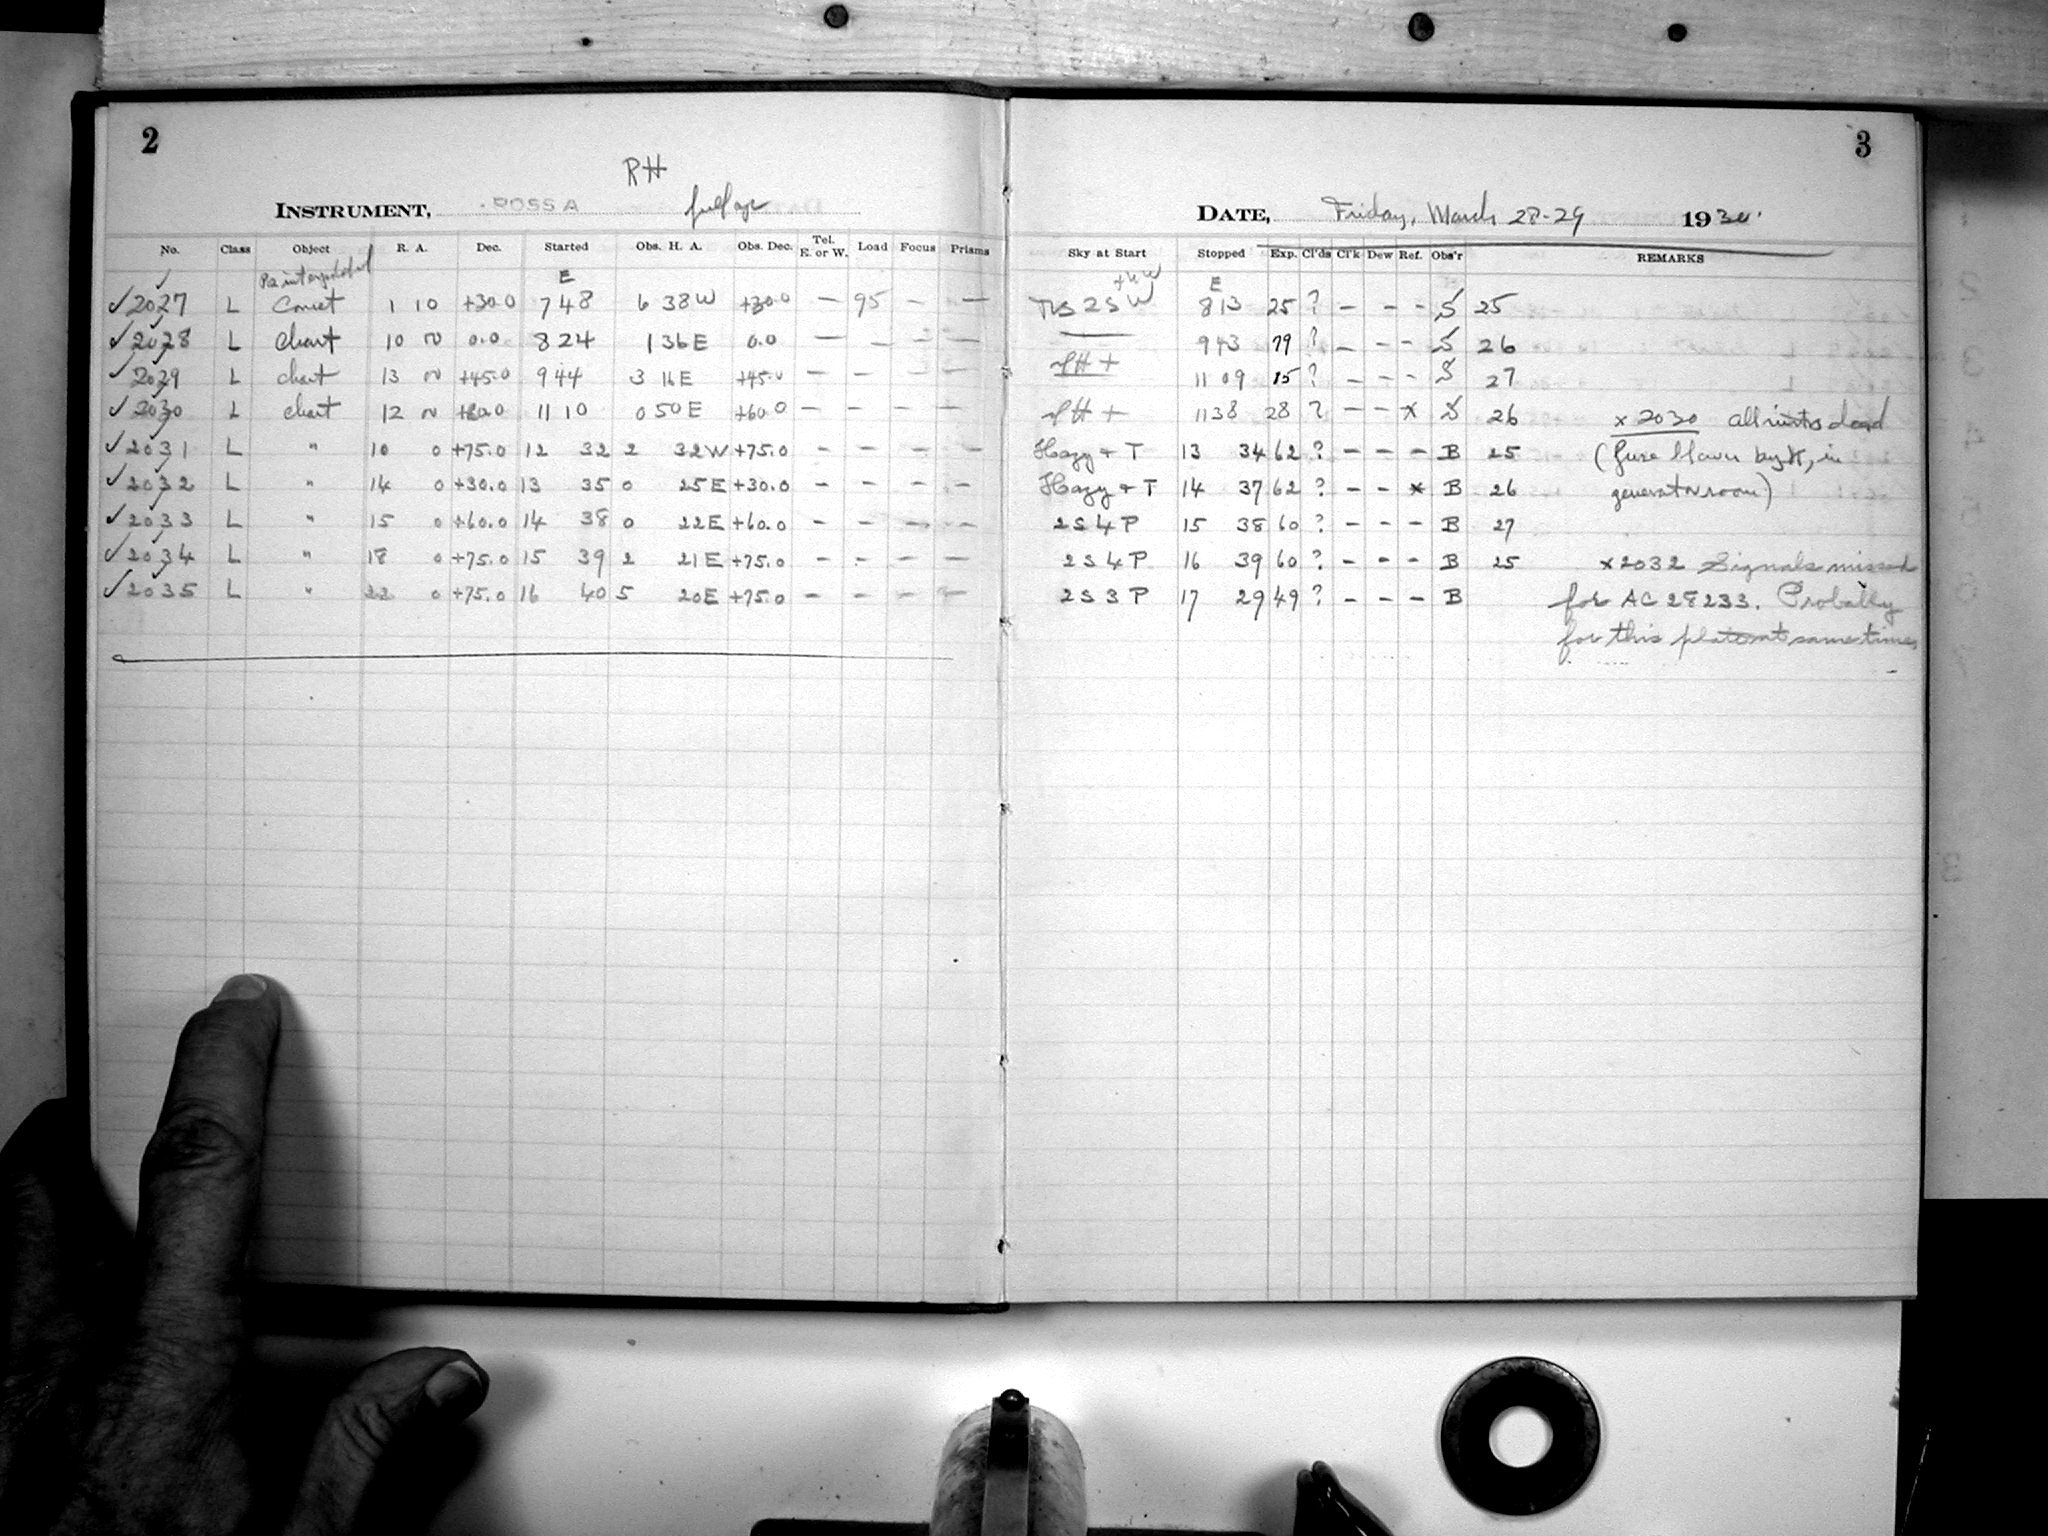 2
RH
INSTRUMENT, ROSS A full ap
No. Class Object R. A. Dec. Started Obs. H. A. Obs. Dec. Tel. E. or W. Load Focus Prisms
E
2027 L Comet 1 10 +30.0 7 48 6 38 W +30.0 — 95 — —
2028 L Chart 10 0 0.0 8 24 1 36 E 0.0 — — — —
2029 L chart 13 0 +45.0 9 44 3 16 E +45.0 — — — —
2030 L chart 12 0 +60.0 11 10 0 50 E +60.0 — — — —
2031 L " 10 0 +75.0 12 32 2 32 W +75.0 — — — —
2032 L " 14 0 +30.0 13 35 0 25 E +30.0 — — — —
2033 L " 15 0 +60.0 14 38 0 22 E +60.0 — — — —
2034 L " 18 0 +75.0 15 39 2 21 E +75.0 — — — —
2035 L " 22 0 +75.0 16 40 5 20 E +75.0 — — — —
3
DATE, Friday, March 28-29 1930.
Sky at Start Stopped Exp. Cl'ds Cl'k Dew Ref. Obs'r REMARKS
E
2S W 8 13 25 ? — — - S 25
9 43 79 ? — — - S 26
11 09 ? — — - S 27
11 38 28 ? — — x S 26 x 2030 all lights dead
Hazy + T 13 34 62 ? — — — B 25 (fuse blown by K, in
Hazy + T 14 37 62 ? — — x B 26 generator room)
2 S 4 P 15 38 60 ? — — — B 27
2 S 4 P 16 39 60 ? — — — B 25 x 2032 Signals missed
2 S 3 P 17 29 49 ? — — — B for AC 28233. Probably
for this plate at same times